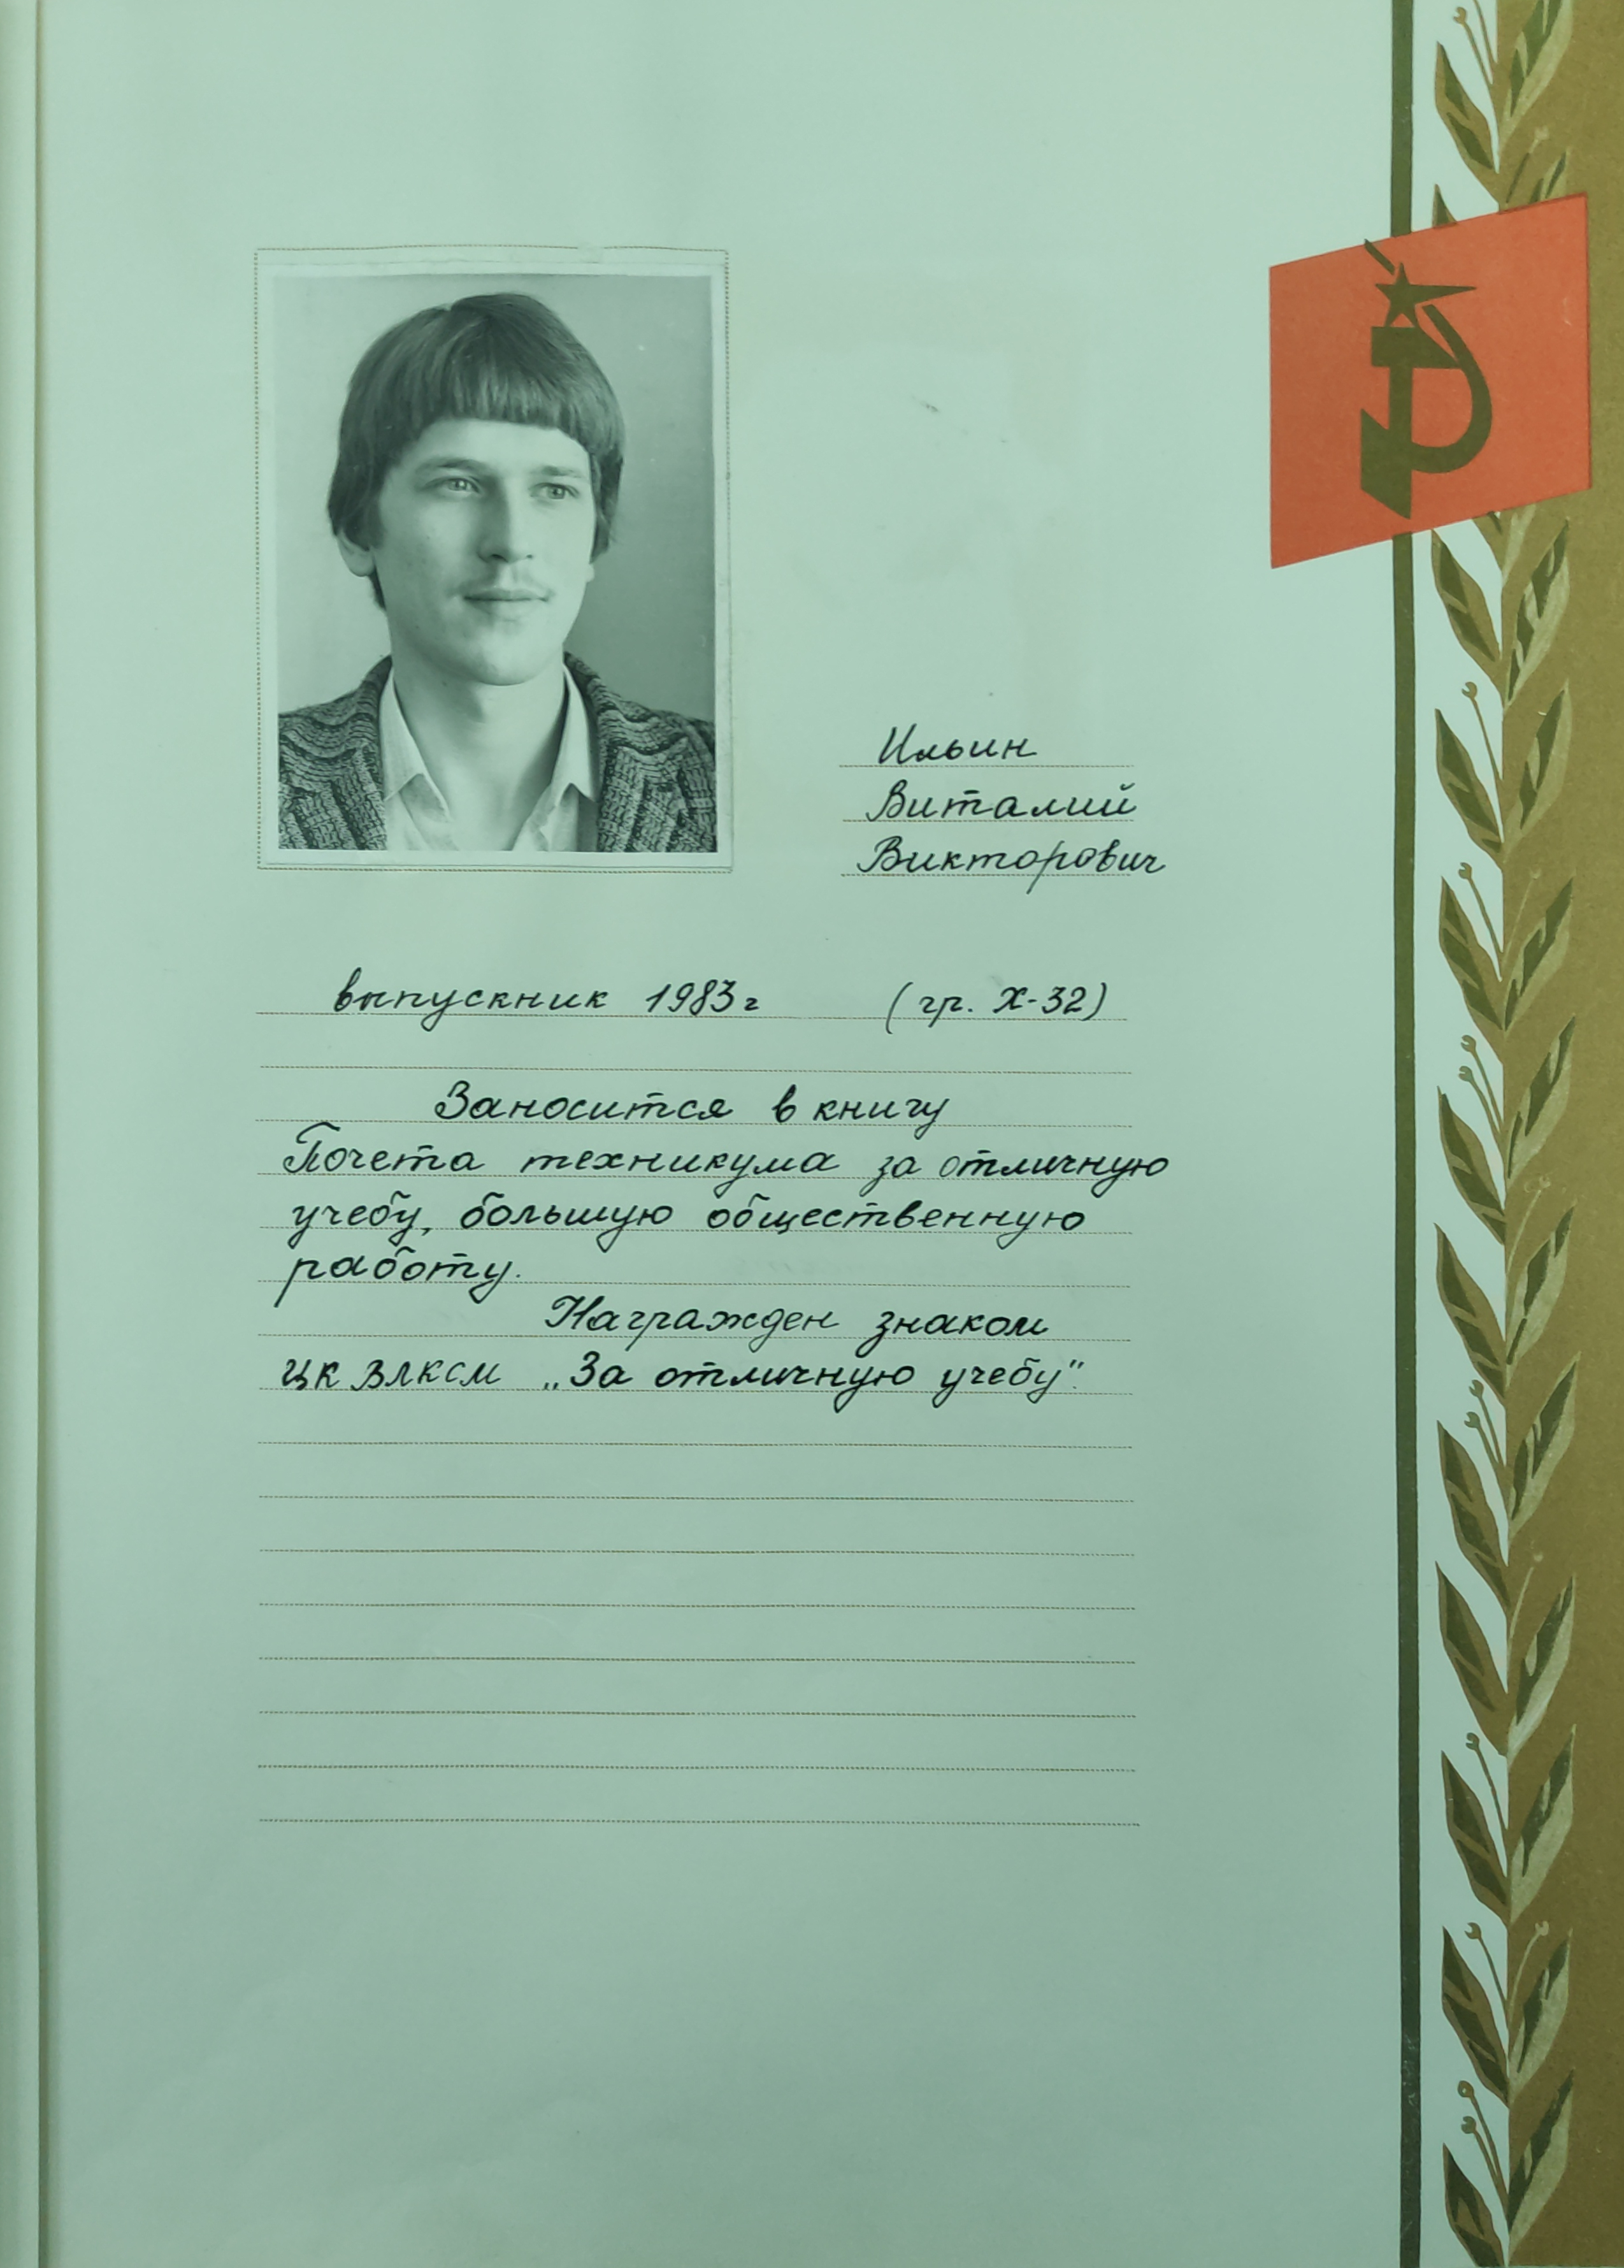 Ильин
Виталий
Викторович
выпускник 1983г (гр. Х-32)
Заносится в книгу
Почета техникума за отличную
учебу, большую общественную
работу.
Награжден знаком
ЦК ВЛКСМ „За отличную учебу".